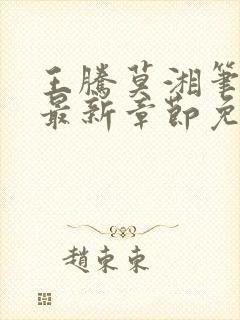 王騰莫湘筆
最新章節免
趙東東